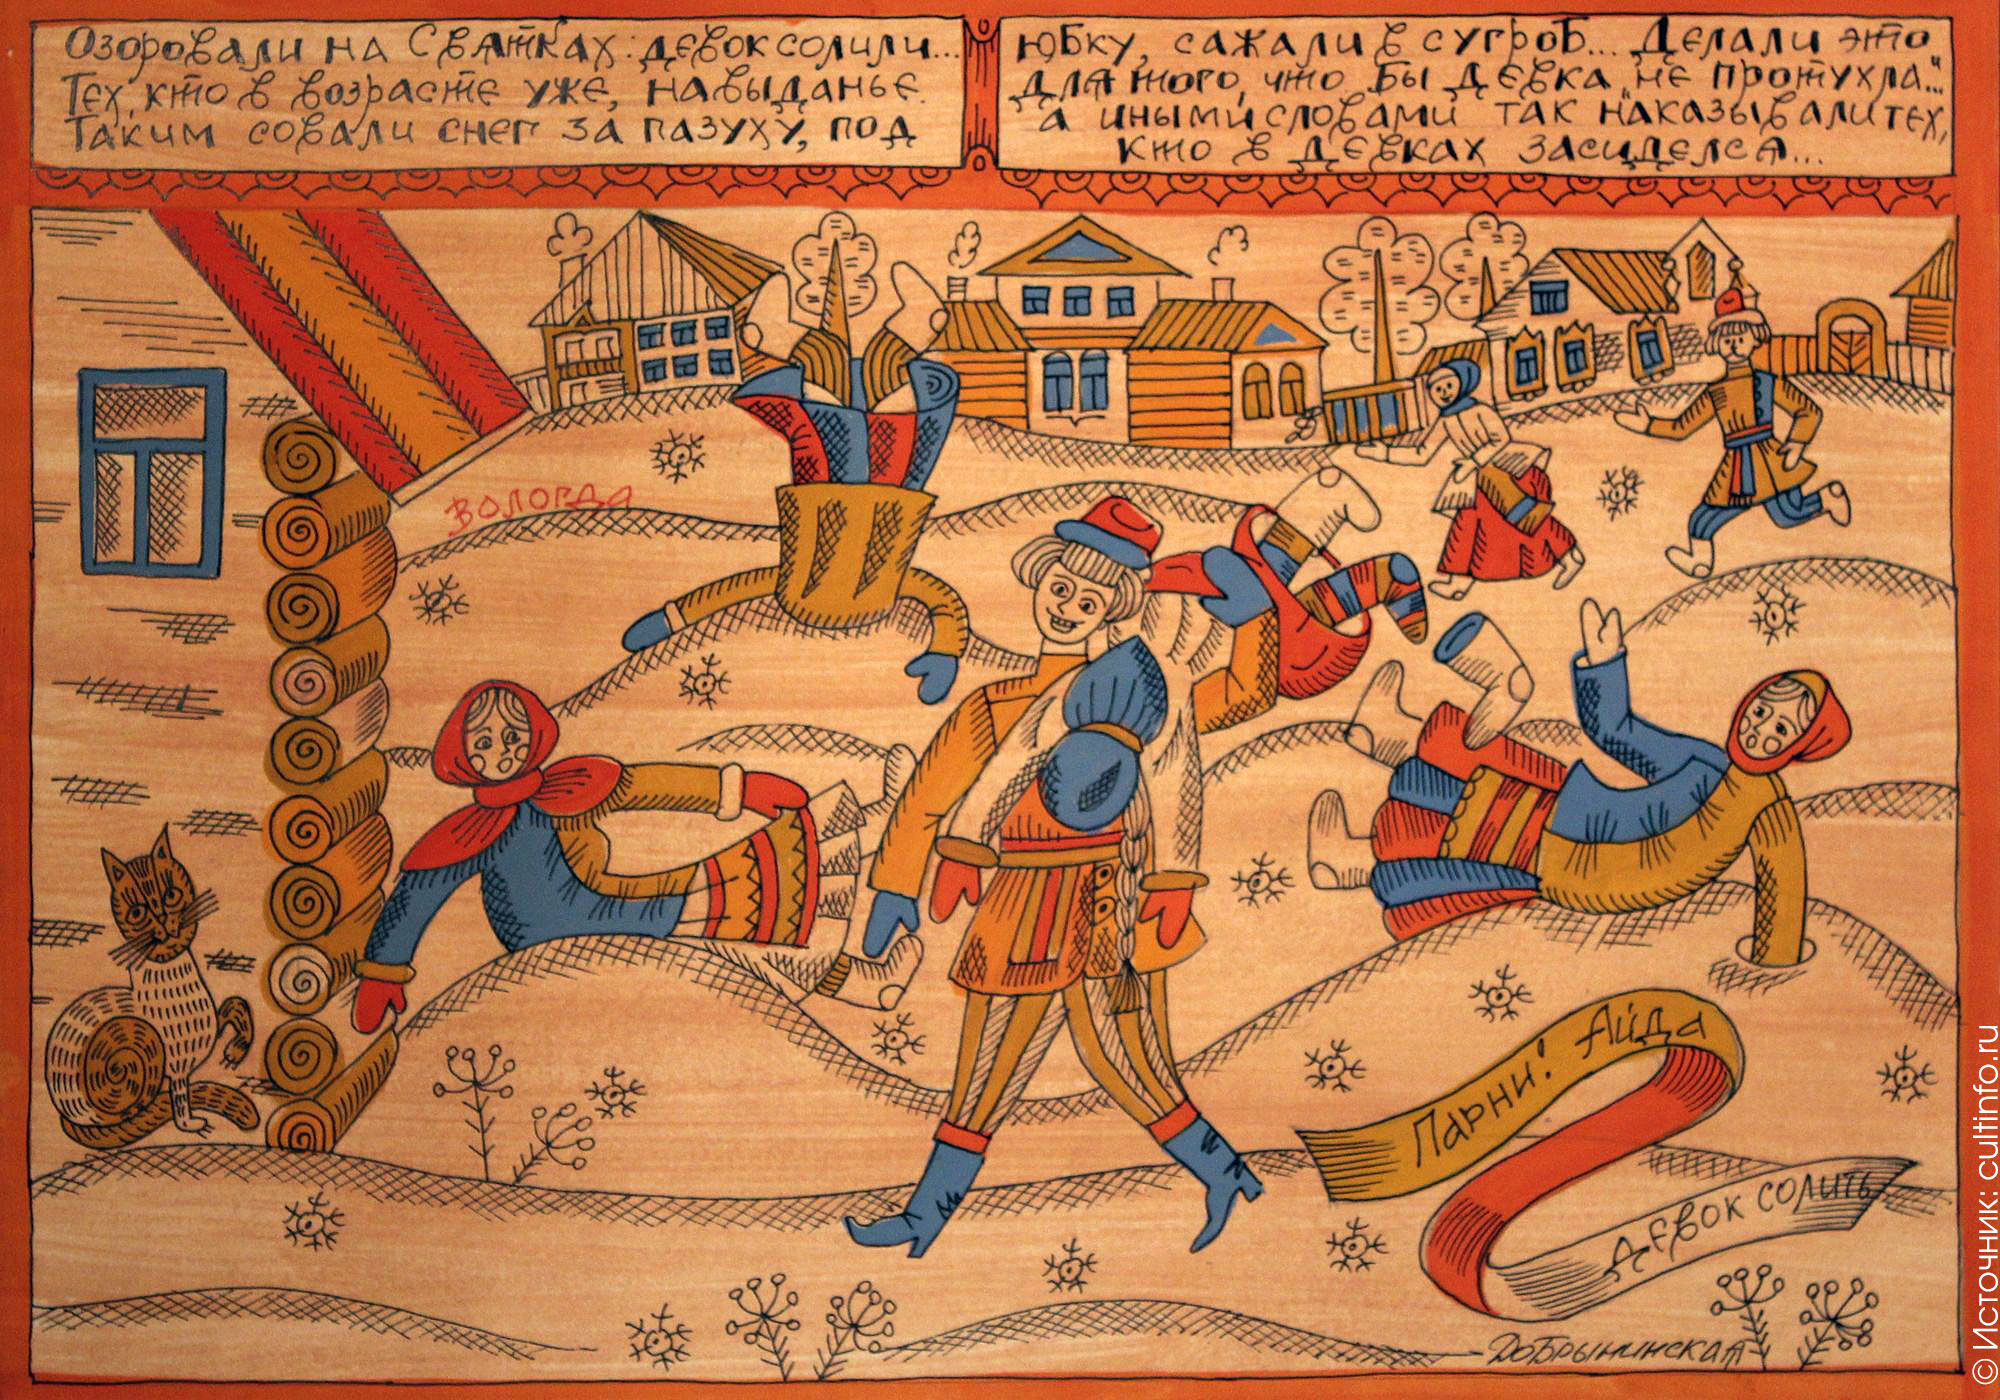 Озоровали на Святках: девок солили...
Тех, кто в возрасте уже, навыданье.
Таким совали снег за пазуху, под
юбку, сажали в сугроб... Делали это
для того, что бы девка „не протухла..."
а иными словами так наказывали тех,
кто в девках засиделся...
Вологда
Парни! Айда
девок солить
Добрынинская
© Источник: cultinfo.ru